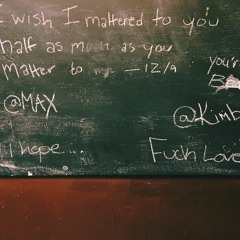 I wish I mattered to you
half as much as you
matter to me — IZ/a
you're
@MAX
@Kimb
I hope...
Fuck Love